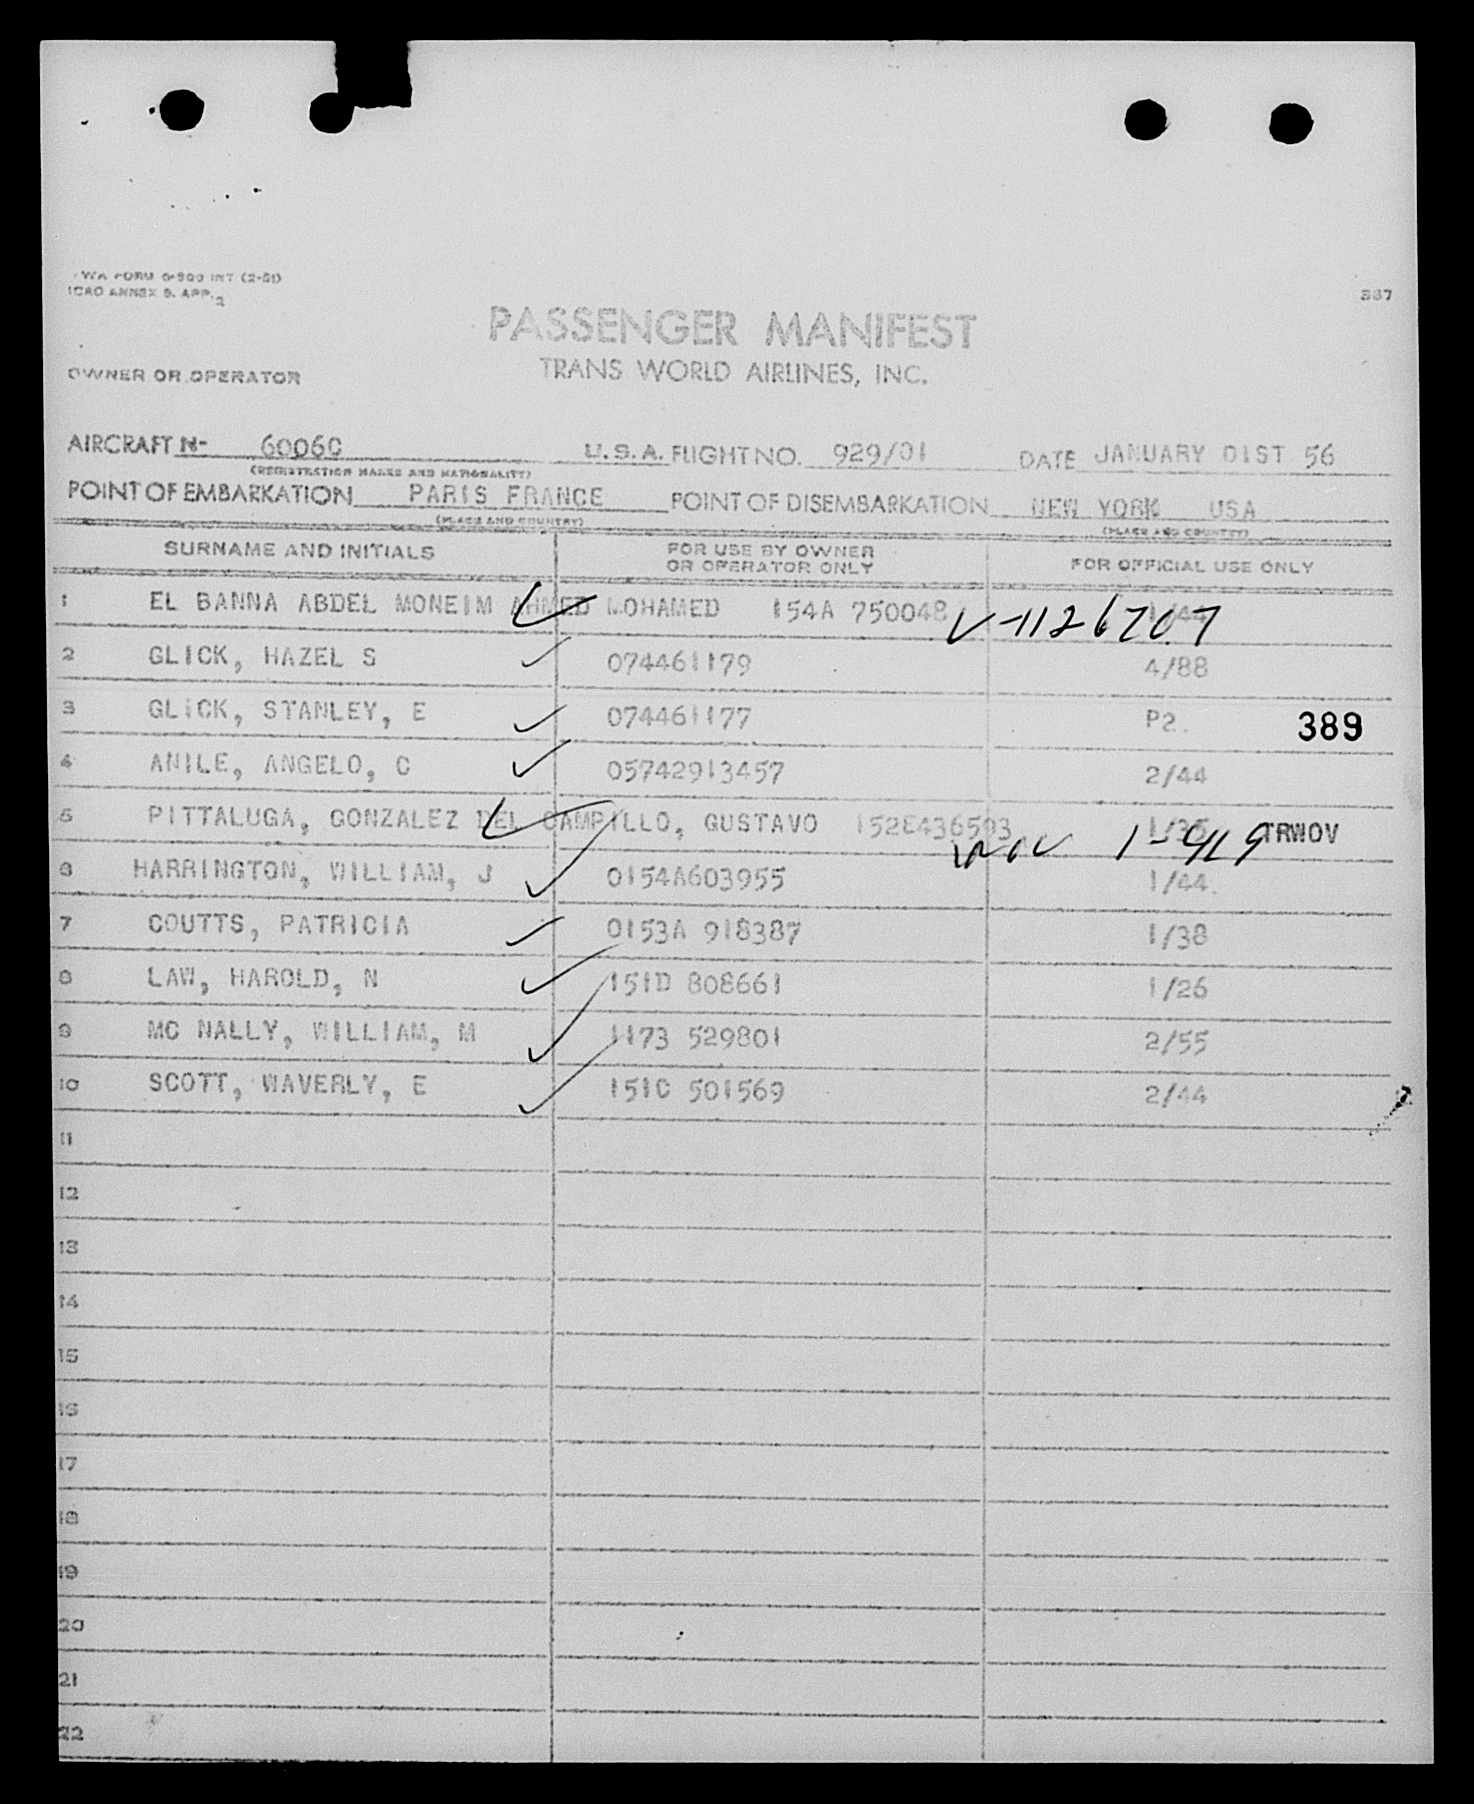 TWA FORM 0-900 INT (2-51)
ICAO ANNEX 9. APP. 2
387
PASSENGER MANIFEST
TRANS WORLD AIRLINES, INC.
OWNER OR OPERATOR
AIRCRAFT N- 6006C U.S.A. FLIGHT NO. 929/01 DATE JANUARY 01ST 56
(REGISTRATION MARKS AND NATIONALITY)
POINT OF EMBARKATION PARIS FRANCE POINT OF DISEMBARKATION NEW YORK USA
(PLACE AND COUNTRY) (PLACE AND COUNTRY)
SURNAME AND INITIALS FOR USE BY OWNER OR OPERATOR ONLY FOR OFFICIAL USE ONLY
1 EL BANNA ABDEL MONEIM AHMED MOHAMED 154A 750048 1/44
V-1126707
2 GLICK, HAZEL S 074461179 4/88
3 GLICK, STANLEY, E 074461177 P2. 389
4 ANILE, ANGELO, C 05742913457 2/44
5 PITTALUGA, GONZALEZ DEL CAMPILLO, GUSTAVO 152E436593 1/35 TRWOV
6 HARRINGTON, WILLIAM, J 0154A603955 1/44.
7 COUTTS, PATRICIA 0153A 918387 1/38
8 LAW, HAROLD, N 151D 808661 1/26
9 MC NALLY, WILLIAM, M 1173 529801 2/55
10 SCOTT, WAVERLY, E 151C 501569 2/44
11
12
13
14
15
16
17
18
19
20
21
22